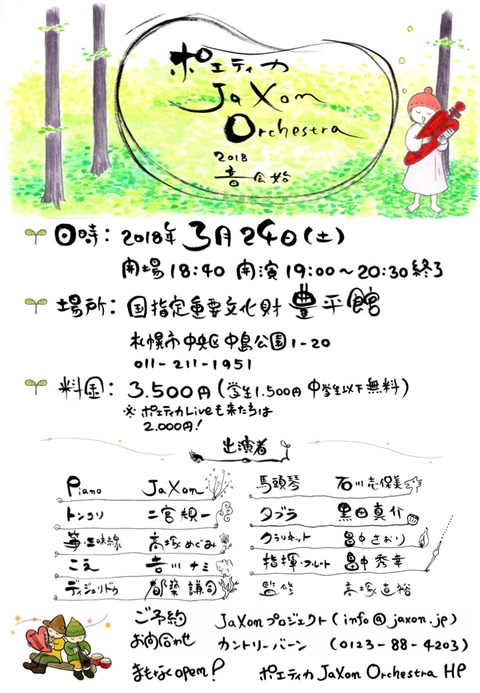 ポエティカ
JaXon
Orchestra
2018
音会始
日時： 2018年 3月24日(土)
開場18:40 開演19:00〜20:30終了
場所： 国指定重要文化財 豊平館
札幌市中央区中島公園1-20
011-211-1951
料金： 3.500円 (学生1.500円 中学生以下無料)
※ポエティカLiveも来たらは
2.000円！
出演者
Piano JaXon
トンコリ 二宮規一
箏・三味線 高塚めぐみ
こえ 吉川ナミ
ディジュリドゥ 都築謙司
馬頭琴 石川志保美
タブラ 黒田真介
クラリネット 畠中さおり
指揮・フルート 畠中秀幸
監修 高塚直裕
ご予約 JaXonプロジェクト(info@jaxon.jp)
お問合わせ カントリーバーン (0123-88-4203)
まもなくopen! ポエティカ JaXon Orchestra HP